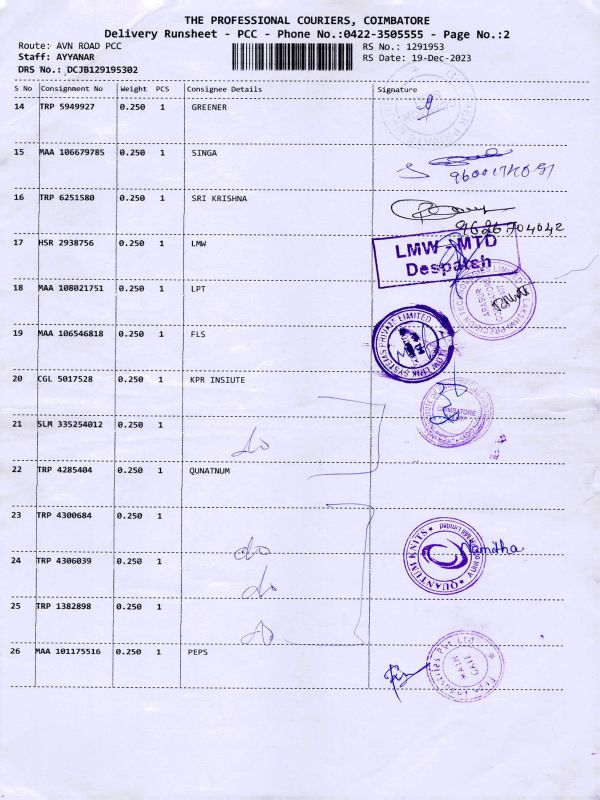 THE PROFESSIONAL COURIERS, COIMBATORE
Delivery Runsheet - PCC - Phone No.:0422-3505555 - Page No.:2
Route: AVN ROAD PCC
RS No.: 1291953
Staff: AYYANAR
RS Date: 19-Dec-2023
DRS No.: DCJB129195302
S No Consignment No Weight PCS Consignee Details Signature
14 TRP 5949927 0.250 1 GREENER
15 MAA 106679785 0.250 1 SINGA
16 TRP 6251580 0.250 1 SRI KRISHNA
9626704042
17 HSR 2938756 0.250 1 LMW
LMW - MTD
Despatch
18 MAA 108021751 0.250 1 LPT
19 MAA 106546818 0.250 1 FLS
FLOW LINK SYSTEMS PRIVATE LIMITED
20 CGL 5017528 0.250 1 KPR INSIUTE
COIMBATORE
21 SLM 335254012 0.250 1
do
22 TRP 4285404 0.250 1 QUNATNUM
23 TRP 4300684 0.250 1
QUANTUM KNITS
Namitha
24 TRP 4306039 0.250 1
do
do
25 TRP 1382898 0.250 1
do
26 MAA 101175516 0.250 1 PEPS
MAIN
GATE